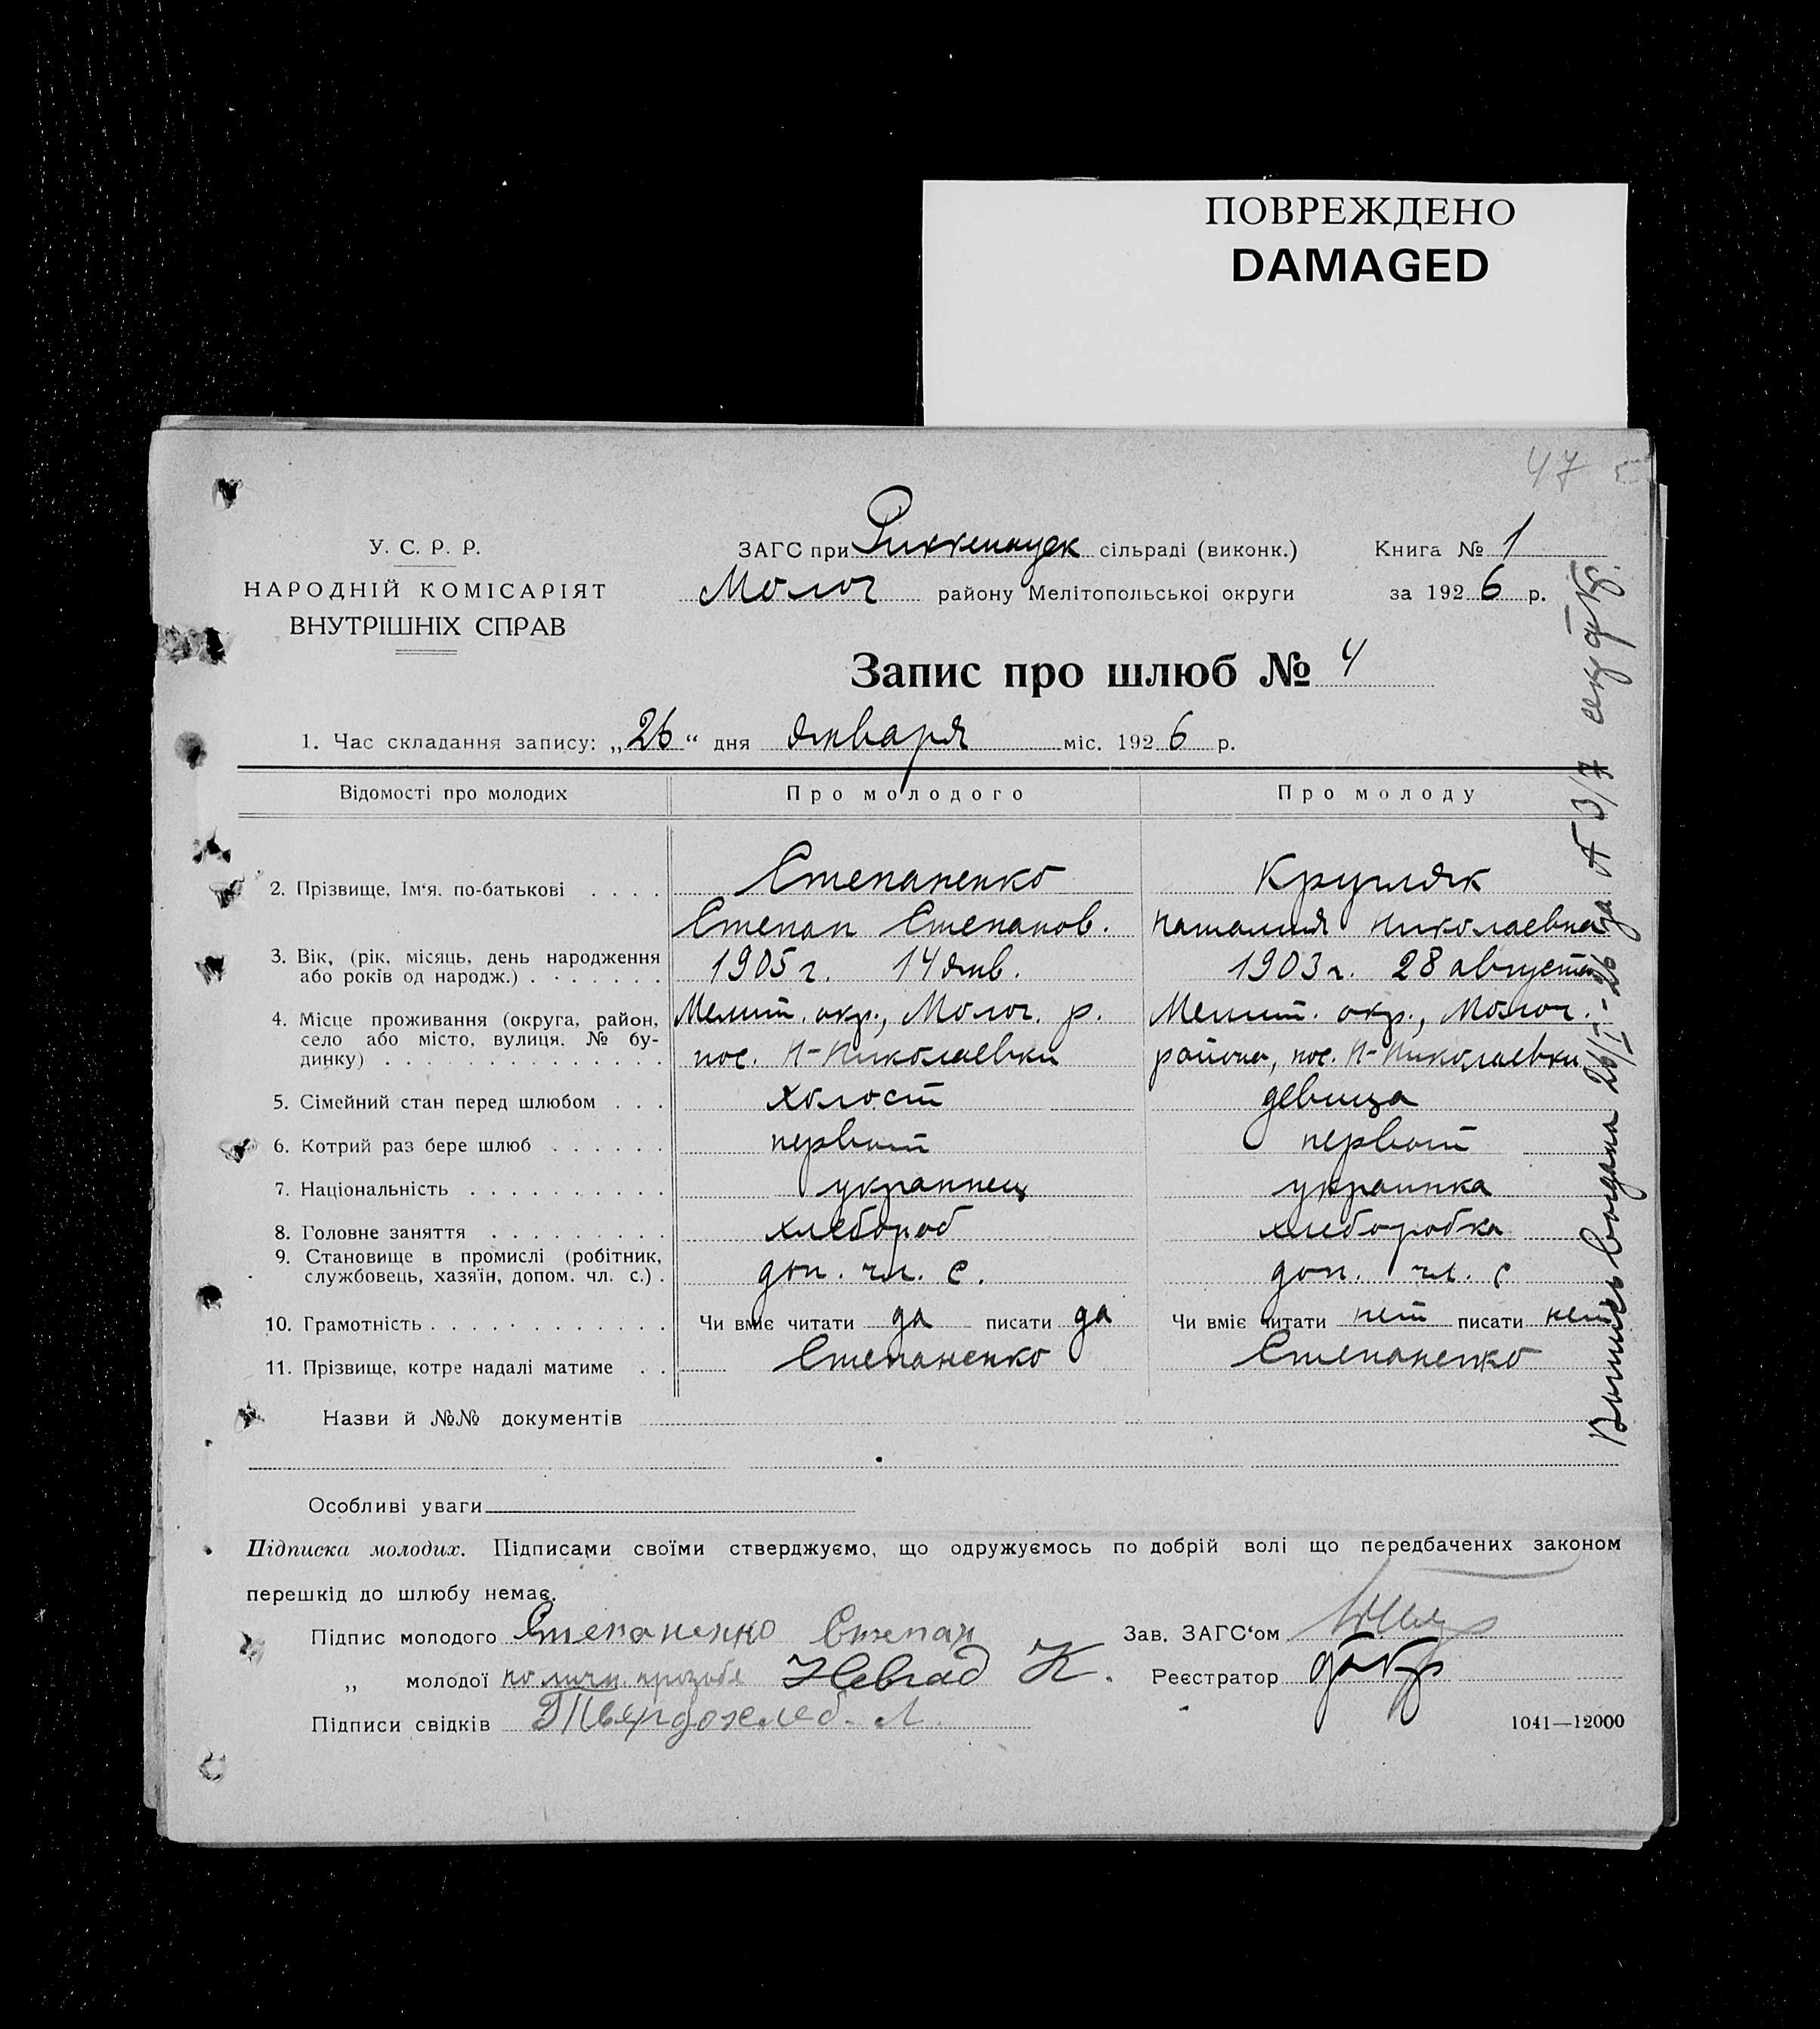 ПОВРЕЖДЕНО
DAMAGED
47
У. С. Р. Р.
НАРОДНІЙ КОМІСАРІЯТ
ВНУТРІШНІХ СПРАВ
ЗАГС при Риккенауск сільраді (виконк.)
Молоч району Мелітопольської округи
Книга № 1
за 1926 р.
Запис про шлюб № 4
1. Час складання запису: „26“ дня января міс. 1926 р.
Відомості про молодих Про молодого Про молоду
2. Прізвище, Ім‘я. по-батькові . . . . Степаненко Кругляк
Степан Степанов. Наталия Николаевна
3. Вік, (рік, місяць, день народження або років од народж.) . . . . . . 1905 г. 14 янв. 1903 г. 28 августа
4. Місце проживання (округа, район, Мелит. окр., Молоч. р. Мелит. окр., Молоч.
село або місто, вулиця. № будинку) . . . . . . . . . . . . . пос. Н-Николаевки района, пос. Н-Николаевки
5. Сімейний стан перед шлюбом . . . холост девица
6. Котрий раз бере шлюб . . . . . . первый первый
7. Національність . . . . . . . . . . украинец украинка
8. Головне заняття . . . . . . . . . хлебороб хлеборобка
9. Становище в промислі (робітник, службовець, хазяїн, допом. чл. с.) . доп. чл. с. доп. чл. с
10. Грамотність . . . . . . . . . . . . Чи вміє читати да писати да Чи вміє читати нет писати нет
11. Прізвище, котре надалі матиме . . Степаненко Степаненко
Назви й №№ документів
Особливі уваги
Підписка молодих. Підписами своїми стверджуємо, що одружуємось по добрій волі що передбачених законом
перешкід до шлюбу немає.
Підпис молодого Степаненко Степан Зав. ЗАГС‘ом
„ молодої по личн. прозьбе К. Реєстратор
Підписи свідків Твердохлеб. Л. 1041—12000
Выпись выдана 26/I-26 за № 3/7